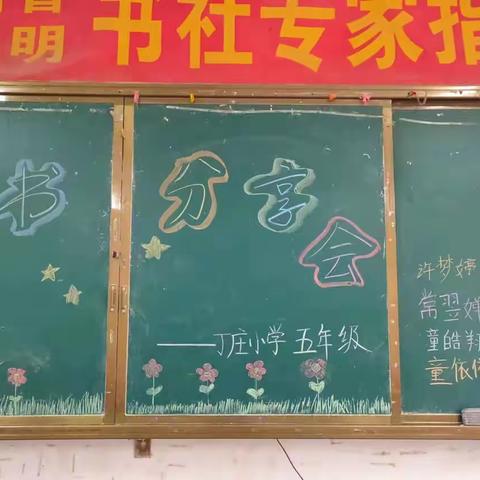 明 书社专家指
书分享会
——丁庄小学 五年级
许梦婷
常翌婵
童皓翔
童依依